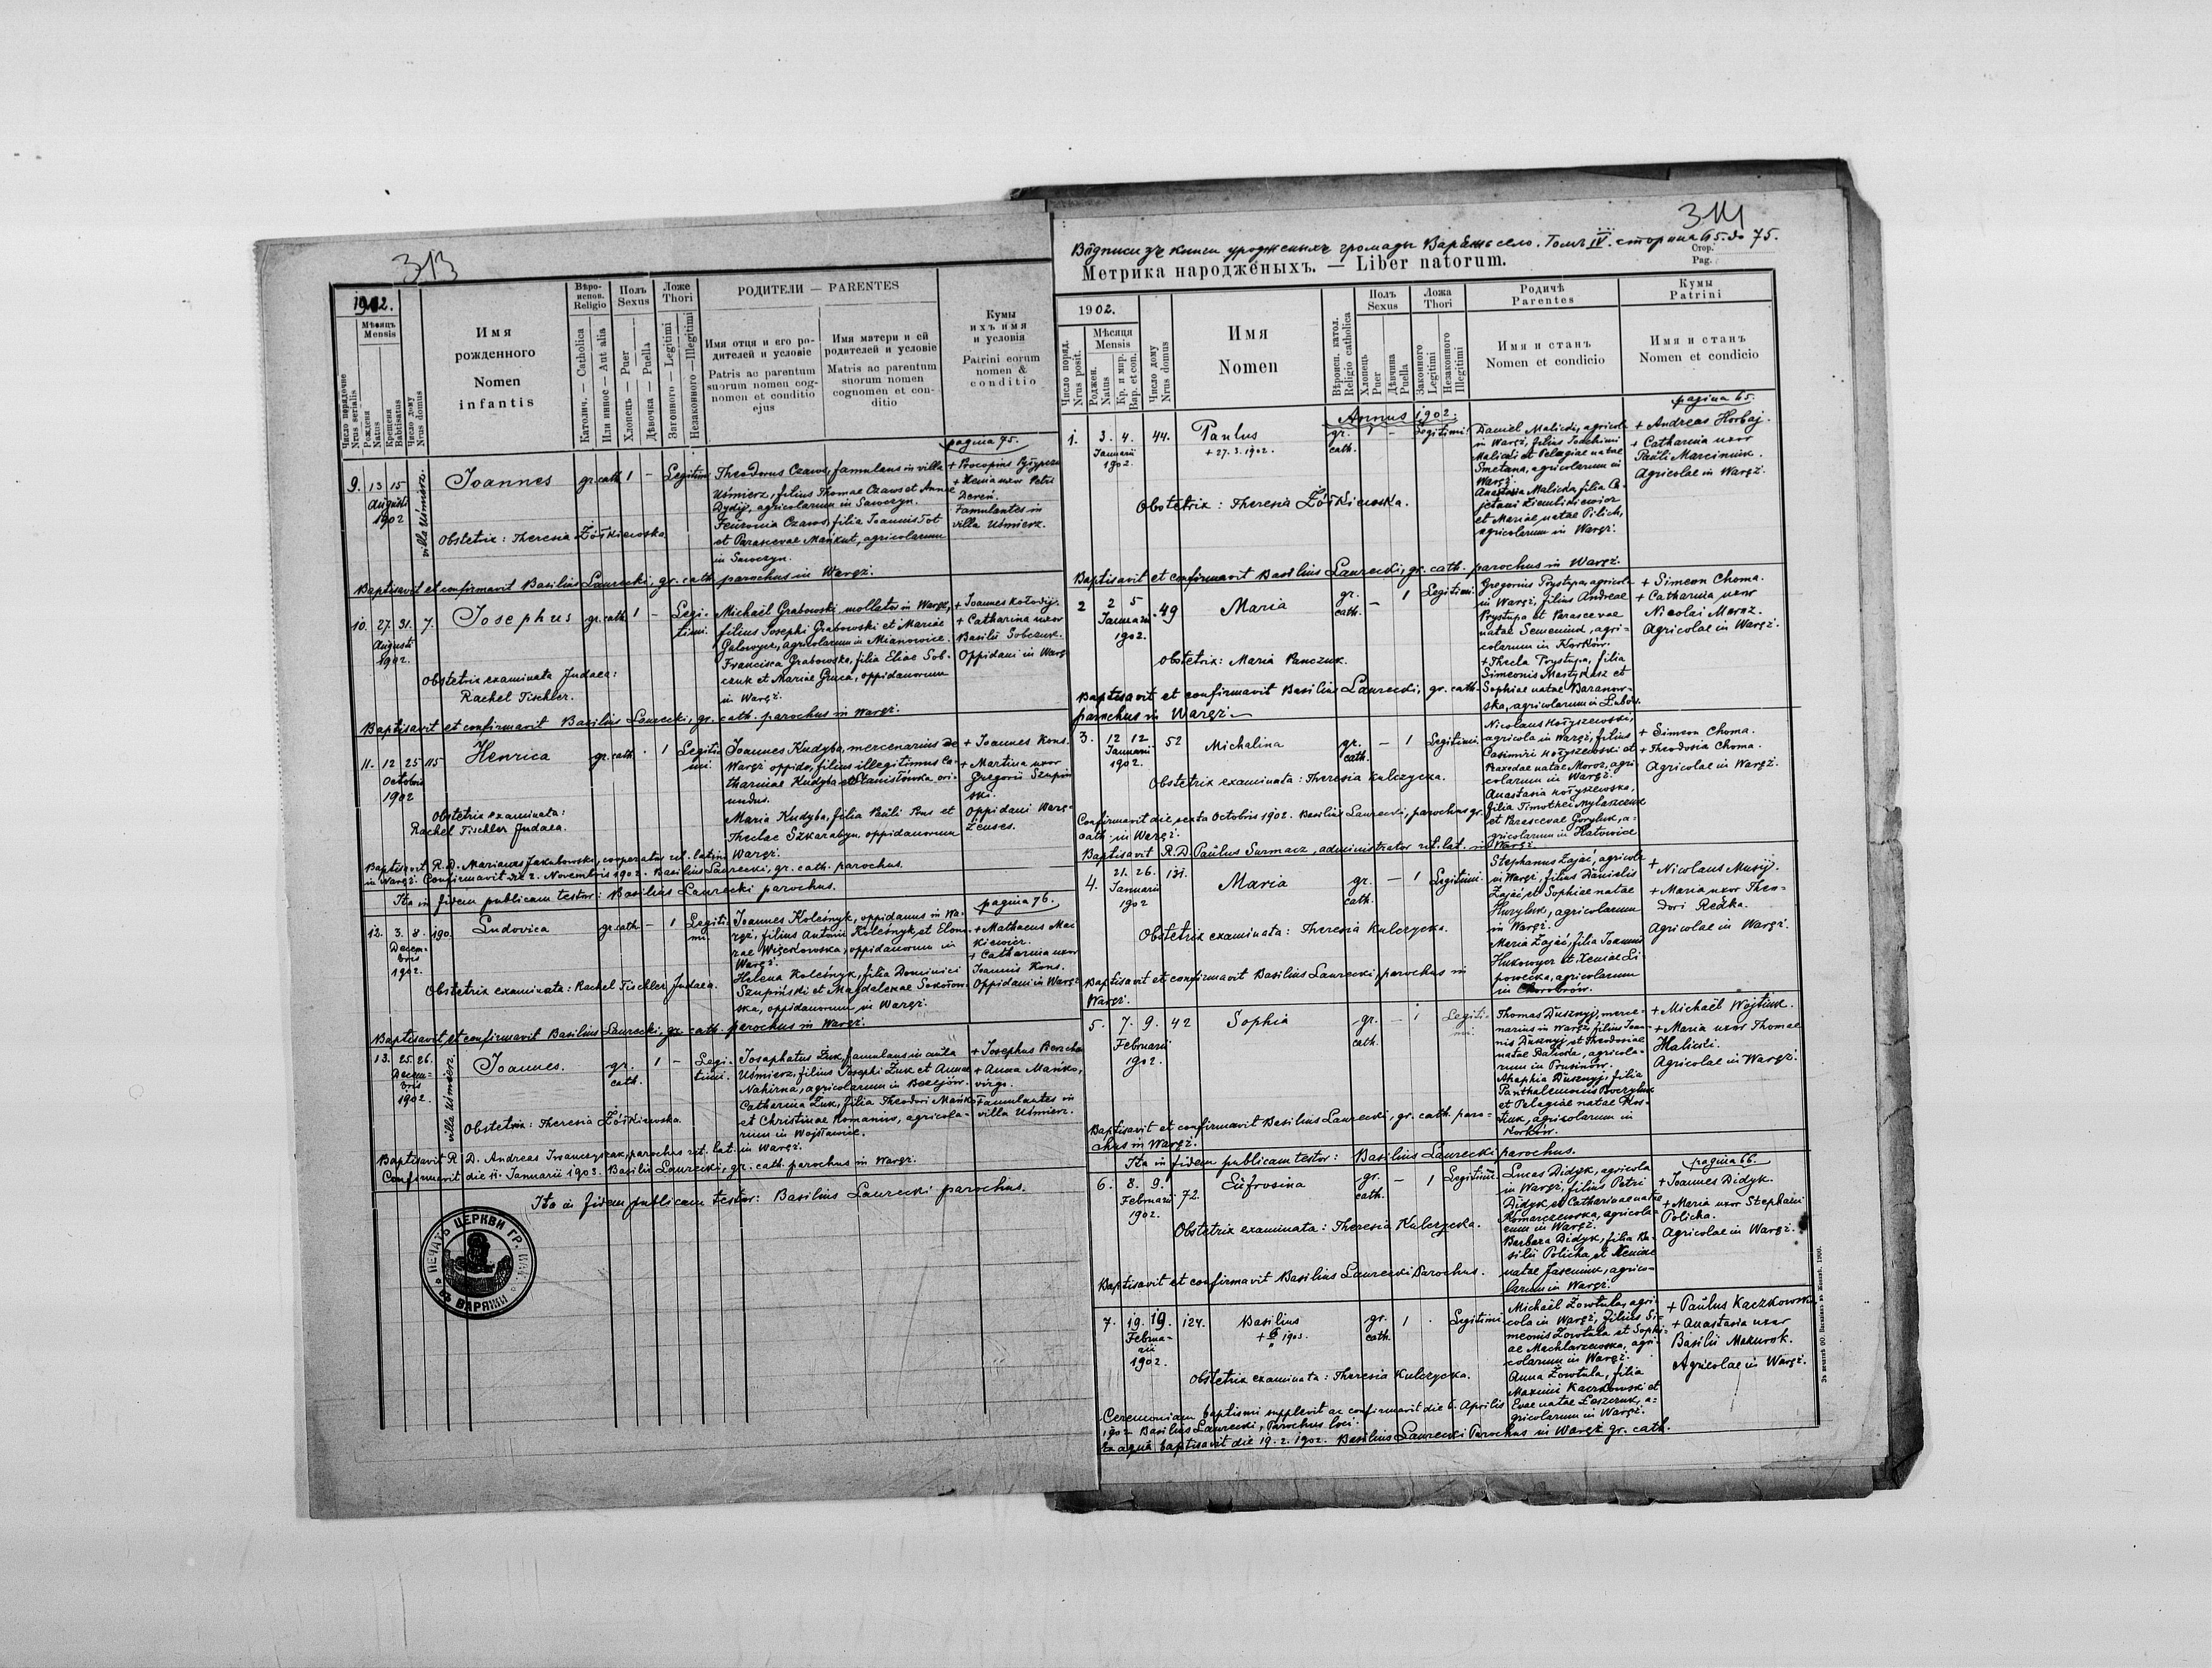 313
1902.
Число порядочне
Nrus serialis
Мѣсяцъ
Mensis
Рожденя
Natus
Крещеня
Babtisatus
Число дому
Nrus domus
Имя
рожденного
Nomen
infantis
Вѣро-
испов.
Religio
Католич. — Catholica
Или иннос — Aut alia
Полъ
Sexus
Хлопець — Puer
Дѣвочка — Puella
Ложе
Thori
Загонного — Legitimi
Незаконного — Illegitimi
РОДИТЕЛИ — PARENTES
Имя отця и его ро-
дителей и условіе
Patris ac parentum
suorum nomen cog-
nomen et conditio
ejus
Имя матери и єй
родителей и условіе
Matris ac parentum
suorum nomen
cognomen et con-
ditio
Кумы
ихъ имя
и условія
Patrini eorum
nomen &
conditio
pagina 75.
9. 13 15
Augusti
1902
villa Uśmierz.
Joannes
gr. cath. 1 – Legitimi
Theodorus Czaws, famulans in villa
Uśmierz, filius Thomae Czaws et Annae
Dydij, agricolarum in Sawczyn.
Feuronia Czaws, filia Joannis Tot
et Parascevae Mańkut, agricolarum
in Sawczyn.
+ Procopius
+ Xenia uxor Petri
Dereń.
Famulantes in
villa Uśmierz.
Obstetrix: Theresia Żółkiewska
Baptisavit et confirmavit Basilius Laurecki, gr. cath. parochus in Waręż.
10. 27. 31. 7.
Augusti
1902.
Josephus
gr. cath. 1 – Legi-
timi.
Michaël Grabowski mollator in Waręż,
filius Josephi Grabowski et Mariae
Galowycz, agricolarum in Mianowice.
Francisca Grabowska, filia Eliae Sob-
czuk et Mariae Gruca, oppidanorum
in Waręż.
+ Joannes Kołodij.
+ Catharina uxor
Basilii Sobczuk.
Oppidani in Waręż
Obstetrix examinata Judaea:
Rachel Tischler.
Baptisavit et confirmavit Basilius Laurecki, gr. cath. parochus in Waręż.
11. 12 25 115
Octobris
1902
Henrica
gr. cath. . 1 Legiti-
mi.
Joannes Kudyba, mercenarius de
Waręż oppido, filius illegitimus Ca-
tharinae Kudyba et Stanisłówka ori-
undus.
Maria Kudyba, filia Pauli Pons et
Theclae Szkarabyn, oppidanorum
Waręż.
+ Joannes Kons.
+ Martina uxor
Gregorii Szupin
ski.
Oppidani Warę-
żenses.
Obstetrix examinata:
Rachel Tischler Judaea.
Baptisavit R. D. Marianus Jakubowski, cooperator rit. latini
in Waręż. Confirmavit die 2. Novembris 1902. Basilius Laurecki, gr. cath. parochus.
Ita in fidem publicam testor: Basilius Laurecki parochus.
pagina 76.
12. 3. 8. 190.
Decem-
bris
1902.
Ludovica
gr. cath. – 1 Legiti-
mi.
Joannes Koleśnyk, oppidanus in Wa-
ręż, filius Antonii Koleśnyk et Eleono-
rae Więckowska, oppidanorum in
Waręż.
Helena Koleśnyk, filia Dominici
Szupiński et Magdalenae Sokołow-
ska, oppidanorum in Waręż.
+ Mathaeus Mac
kiewicz.
+ Catharina uxor
Joannis Kons.
Oppidani in Waręż
Obstetrix examinata: Rachel Tischler Judaea.
Baptisavit et confirmavit Basilius Laurecki, gr. cath. parochus in Waręż.
13. 25. 26.
Decem-
bris
1902.
villa Uśmierz.
Joannes.
gr.
cath. 1 – Legi-
timi.
Josaphatus Żuk, famulans in aula
Uśmierz, filius Josephi Żuk et Annae
Nahirna, agricolarum in Borejów.
Catharina Żuk, filia Theodori Mańko
et Christinae Romaniw, agricola-
rum in Wojsławice.
+ Josephus Bercha
+ Anna Mańko,
virgo.
Famulantes in
villa Uśmierz.
Obstetrix: Theresia Żółkiewska.
Baptisavit R. D. Andreas Iwanczyszak, parochus rit. lat. in Waręż.
Confirmavit die 11. Januarii 1903. Basilius Laurecki, gr. cath. parochus in Waręż.
Ita in fidem publicam testor: Basilius Laurecki parochus.
ПЕЧАТЬ ЦЕРКВИ ГР. КАТ. ВЪ ВАРЯЖИ
314
Вôдписи зъ книги уродженыхъ громады Варяжъ село. Томъ IV. сторона 65. до 75.
Стор.
Pag.
Метрика народженыхъ. — Liber natorum.
1902.
Число поряд.
Nrus posit.
Мѣсяця
Mensis
Роджен.
Natus
Кр. и мир.
Bap. et con.
Число дому
Nrus domus
Имя
Nomen
Вѣроисп. катол.
Religio catholica
Полъ
Sexus
Хлопець
Puer
Дѣвчина
Puella
Ложа
Thori
Законного
Legitimi
Незаконного
Illegitimi
Родичѣ
Parentes
Имя и станъ
Nomen et condicio
Кумы
Patrini
Имя и станъ
Nomen et condicio
Annus 1902.
pagina 65.
1. 3. 4. 44.
Januarii
1902.
Paulus
+ 27. 3. 1902.
gr.
cath. 1 – Legitimi.
Daniel Malicki, agricola
in Waręż, filius Joachimi
Malicki et Pelagiae natae
Smetana, agricolarum in
Waręż.
Anastasia Malicka filia Ca-
jetani Ziemlikiewicz
et Mariae natae Pilich,
agricolarum in Waręż.
+ Andreas Horbaj.
+ Catharina uxor
Pauli Marciniuk.
Agricolae in Waręż.
Obstetrix: Theresia Żółkiewska.
Baptisavit et confirmavit Basilius Laurecki, gr. cath. parochus in Waręż.
2 2 5 49
Januarii
1902.
Maria
gr.
cath. – 1 Legitimi.
Gregorius Prystupa, agricola
in Waręż, filius Andreae
Prystupa et Parascevae
natae Semeniuk, agri-
colarum in Korków.
+ Thecla Prystupa, filia
Simeonis Mastykasz et
Sophiae natae Baranow-
ska, agricolarum in Lubów.
+ Simeon Choma.
+ Catharina uxor
Nicolai Moroz.
Agricolae in Waręż.
Obstetrix: Maria Panczuk.
Baptisavit et confirmavit Basilius Laurecki, gr. cath.
parochus in Waręż.
3. 12 12 52
Januarii
1902.
Michalina
gr.
cath. – 1 Legitimi.
Nicolaus Kołyszewski,
agricola in Waręż, filius
Casimiri Kołyszewski et
Praxedae natae Moroz, agri-
colarum in Waręż.
Anastasia Kołyszewska,
filia Timothei Mylaszczuk
et Parascevae Goryluk, a-
gricolarum in Chatowice
Waręż.
+ Simeon Choma.
+ Theodosia Choma.
Agricolae in Waręż.
Obstetrix examinata: Theresia Kulczycka.
Confirmavit die sexta Octobris 1902. Basilius Laurecki, parochus gr.
cath. in Waręż.
Baptisavit R. D. Paulus Surmacz, administrator rit. lat. in
4. 21. 26. 131.
Januarii
1902
Maria
gr.
cath. – 1 Legitimi.
Stephanus Zając, agricola
in Waręż, filius Danielis
Zając et Sophiae natae
Huzyluk, agricolarum
in Waręż.
Maria Zając, filia Joannis
Hukowycz et Xeniae Li
powecka, agricolarum
in Chorobrów.
+ Nicolaus Musij.
+ Maria uxor Theo-
dori Redka.
Agricolae in Waręż.
Obstetrix examinata: Theresia Kulczycka.
Baptisavit et confirmavit Basilius Laurecki, parochus in
Waręż.
5. 7. 9. 42
Februarii
1902.
Sophia
gr.
cath. – 1 Legiti-
mi.
Thomas Dusznyj, merce-
narius in Waręż, filius Joan-
nis Dusznyj et Theodosiae
natae, agricola-
rum in Prusinów.
Ahaphia Dusznyj, filia
Panthalemonis Boczyluk
et Pelagiae natae Kos-
tiuk, agricolarum in
Korków.
+ Michaël Wojtiuk.
+ Maria uxor Thomae
Malicki.
Agricolae in Waręż.
Baptisavit et confirmavit Basilius Laurecki, gr. cath. paro-
chus in Waręż.
Ita in fidem publicam testor: Basilius Laurecki parochus.
pagina 66.
6. 8. 9. 72.
Februarii
1902.
Eufrosina
gr.
cath. – 1 Legitimi.
Lucas Didyk, agricola
in Waręż, filius Petri
Didyk et Catharinae natae
Komarczewska, agricola-
rum in Waręż.
Barbara Didyk, filia Ba-
silii Policha et Xeniae
natae Jaseniuk, agrico-
larum in Waręż.
+ Joannes Didyk.
+ Maria uxor Stephani
Policha.
Agricolae in Waręż.
Obstetrix examinata: Theresia Kulczycka.
Baptisavit et confirmavit Basilius Laurecki Parochus.
7. 19. 19. 124.
Februa-
rii
1902.
Basilius
1903.
gr.
cath. 1 . Legitimi.
Michaël Zowtula, agri-
cola in Waręż, filius Si-
meonis Zowtula et Sophi-
ae Machlarzewska, agri-
colarum in Waręż.
Anna Zowtula, filia
Maximi Kaczkowski et
Evae natae Łaszczuk, a-
gricolarum in Waręż.
+ Paulus Kaczkowski
+ Anastasia uxor
Basilii Mazurok.
Agricolae in Waręż.
Obstetrix examinata: Theresia Kulczycka.
Ceremoniam baptismi supplevit ac confirmavit die 6. Aprilis
1902 Basilius Laurecki, Parochus loci.
Ex aqua baptisavit die 19. 2. 1902. Basilius Laurecki Parochus in Waręż gr. cath.